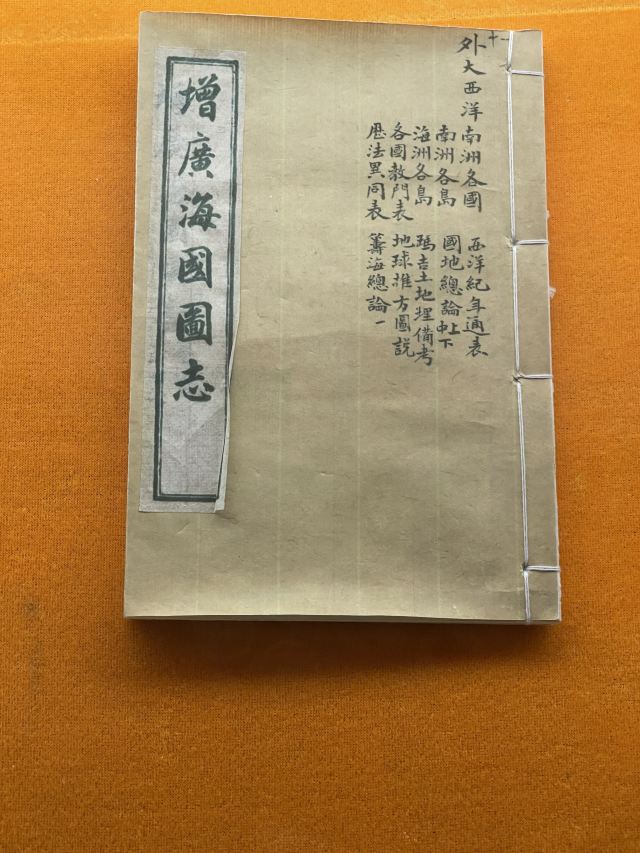 十一
外大西洋南洲各國
南洲各島
海洲各島
各國教門表
厯法異同表
西洋紀年通表
國地總論上中下
瑪吉士地理備考
地球推方圖說
籌海總論一
增廣海國圖志